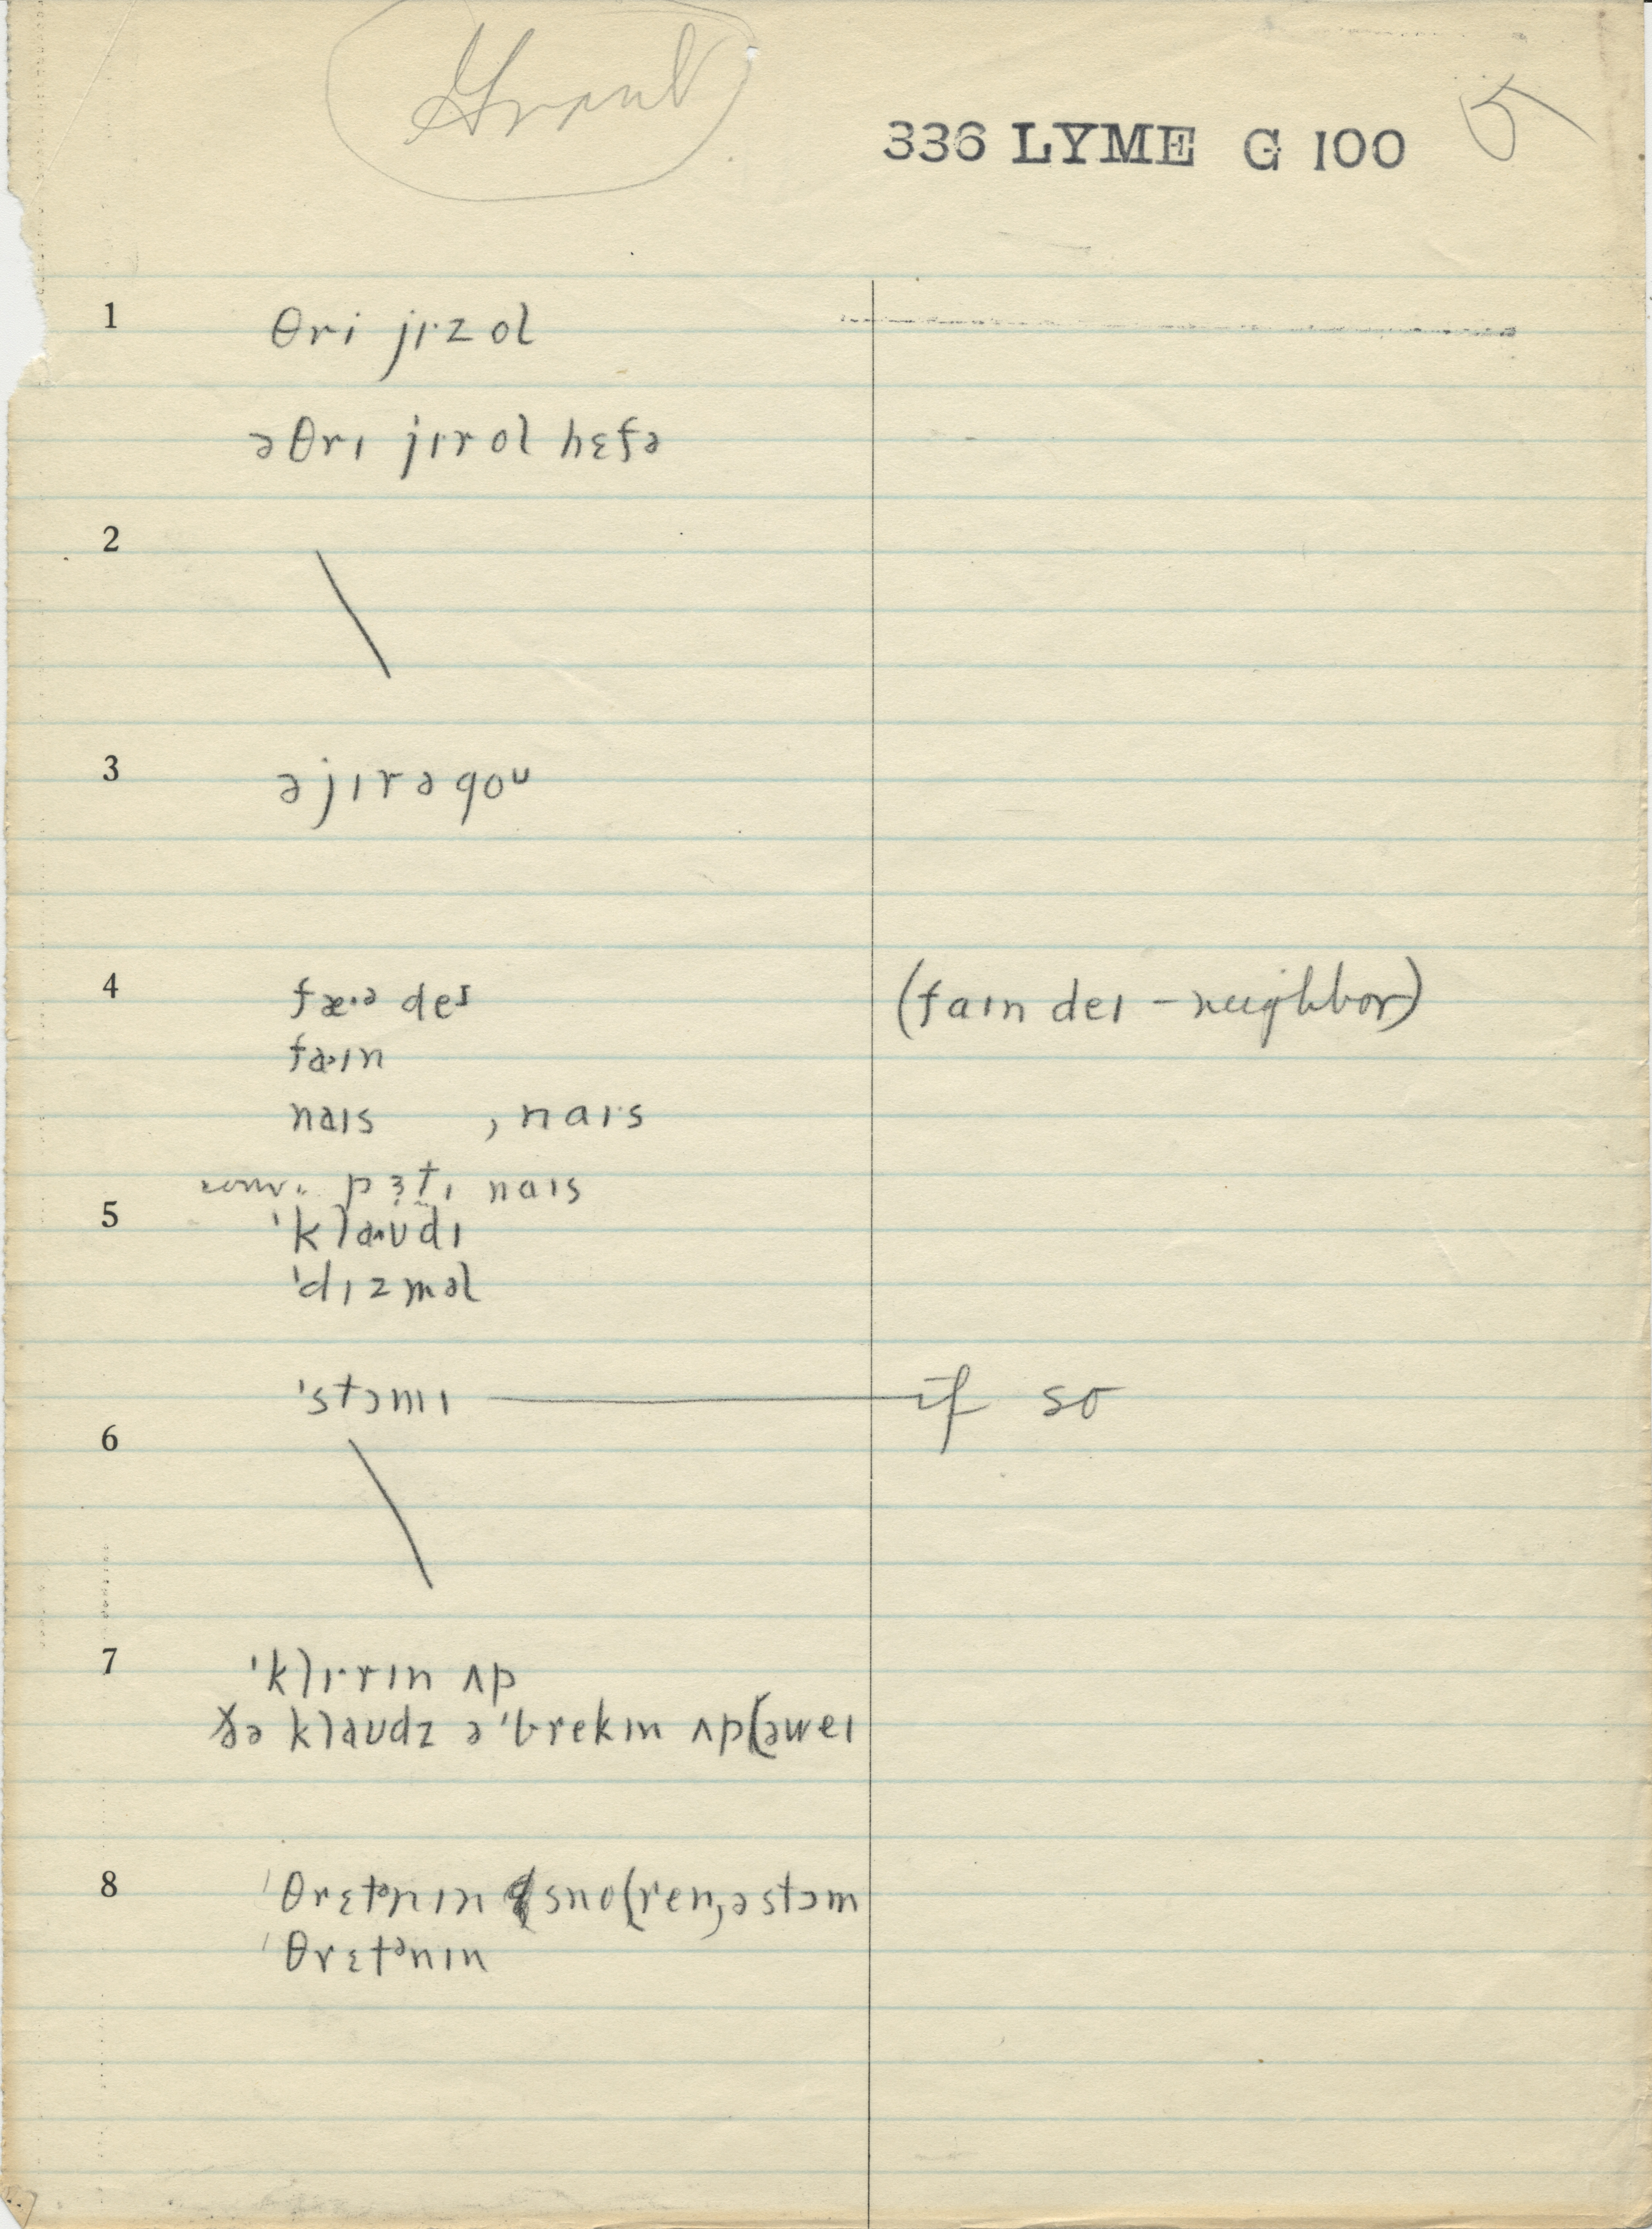 Grant
336 LYME G 100 5
1 θri jɪ·z ol
ə θrɪ jɪr ol hɛfə
2
3 ə jɪr ə goᵁ
4 fæ·ᵊ deᶦ (faɪn deɪ – neighbor)
fa·ɪn
naɪs , naɪ·s
conv. pɜt̬ɪ naɪs
5 'klaʊdɪ
'dɪzməl
'stɔmɪ — if so
6
7 'klɪ·rɪn ʌp
ðə klaʊdz ə 'brekɪn ʌp(əweɪ
8 'θrɛtᵊnɪn sno(ren, ə stɔm
'θrɛtᵊnɪn